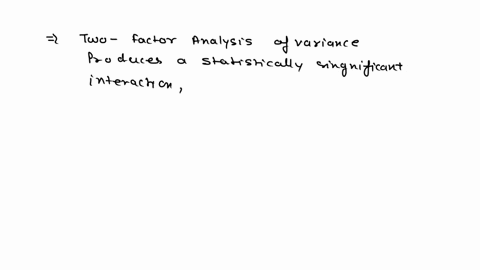 ⇒ Two-factor Analysis of variance
Produces a statistically singnificant
interaction,